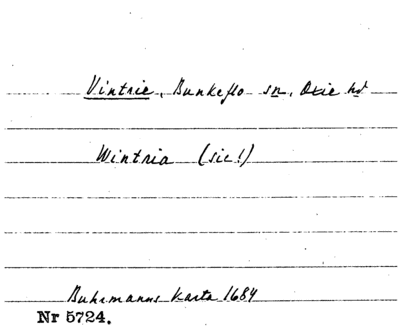 Vintrie, Bunkeflo sn, Oxie hd
Wintria (sic!)
Buhrmanns Karta 1684
Nr 5724.